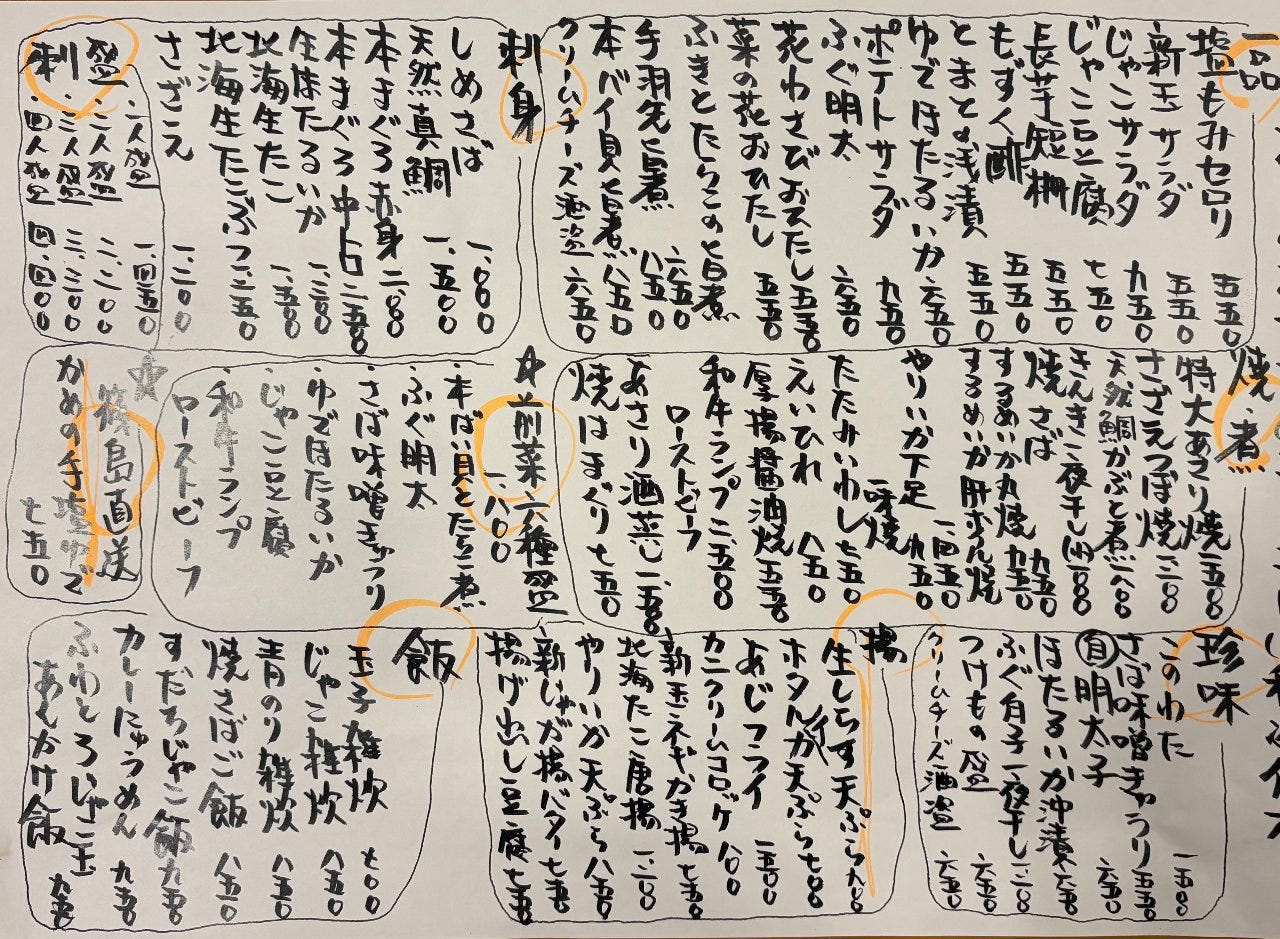 一品
塩もみセロリ 五五〇
新玉サラダ 五五〇
じゃこサラダ 九五〇
じゃこ豆腐 七五〇
長芋短冊 五五〇
もずく酢 五五〇
とまと浅漬 五五〇
ゆでほたるいか 六五〇
ポテトサラダ 九五〇
ふぐ明太 六五〇
花わさびおひたし 五五〇
菜の花おひたし 五五〇
ふきとたらこの旨煮 六五〇
手羽先旨煮 八五〇
本バイ貝旨煮 八五〇
クリームチーズ酒盗 六五〇
刺身
しめさば 一、〇〇〇
天然真鯛 一、五〇〇
本まぐろ赤身 二、〇〇〇
本まぐろ中トロ 二、五〇〇
生ほたるいか 一、二〇〇
北海生たこ 一、五〇〇
北海生たこぶつ 一、二五〇
さざえ 一、二〇〇
刺盛
・一人盛 一、四五〇
・二人盛 二、二〇〇
・三人盛 三、三〇〇
・四人盛 四、四〇〇
焼・煮
特大あさり焼 一、五〇〇
さざえつぼ焼 一、二〇〇
天然鯛かぶと煮 一、八〇〇
きんき一夜干し(小)
焼さば 九五〇
するめいか丸焼 九五〇
するめいか肝ホイル焼 一、四五〇
やりいか下足一味焼 九五〇
たたみいわし 七五〇
えいひれ 八五〇
厚揚醤油焼 五五〇
和牛ランプローストビーフ 二、五〇〇
あさり酒蒸し 一、一五〇
焼はまぐり 七五〇
☆前菜六種盛 一、八〇〇
・本ばい貝とたらこ煮
・ふぐ明太
・さば味噌きゅうり
・ゆでほたるいか
・じゃこ豆腐
・和牛ランプローストビーフ
☆篠島直送
かめの手塩ゆで 七五〇
珍味
このわた 一、五〇〇
さば味噌きゅうり 五五〇
自明太子 六五〇
ほたるいか沖漬 六五〇
ふぐ白子一夜干し 一、二〇〇
つけもの盛 六五〇
クリームチーズ酒盗 六五〇
揚
生しらす天ぷら
ホタルイカ天ぷら 七〇〇
あじフライ
カニクリームコロッケ 八〇〇
新玉ネギかき揚 七五〇
北海たこ唐揚 一、二〇〇
やりいか天ぷら 八五〇
新じゃが揚バター 七五〇
揚げ出し豆腐 七五〇
飯
玉子雑炊 七〇〇
じゃこ雑炊 八五〇
青のり雑炊 八五〇
焼さばご飯 八五〇
すだちじゃこ飯 九五〇
カレーにゅうめん 九五〇
ふわとろいも玉あんかけ飯 九五〇